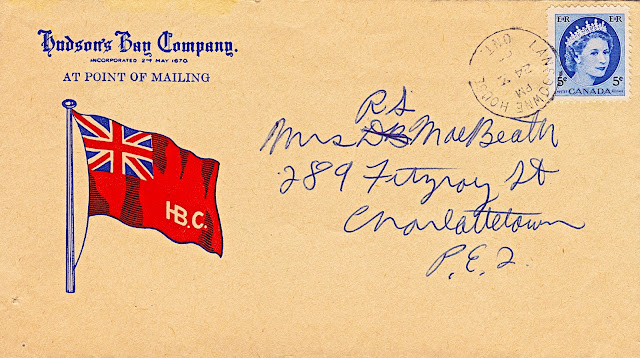 Hudson's Bay Company.
INCORPORATED 2ND MAY 1670.
AT POINT OF MAILING
H.B.C.
LANSDOWNE HOUSE
ONT.
PM
24
E·R E·R
5¢ CANADA 5¢
R S
Mrs DB MacBeath
289 Fitzroy St
Charlottetown
P.E.I.